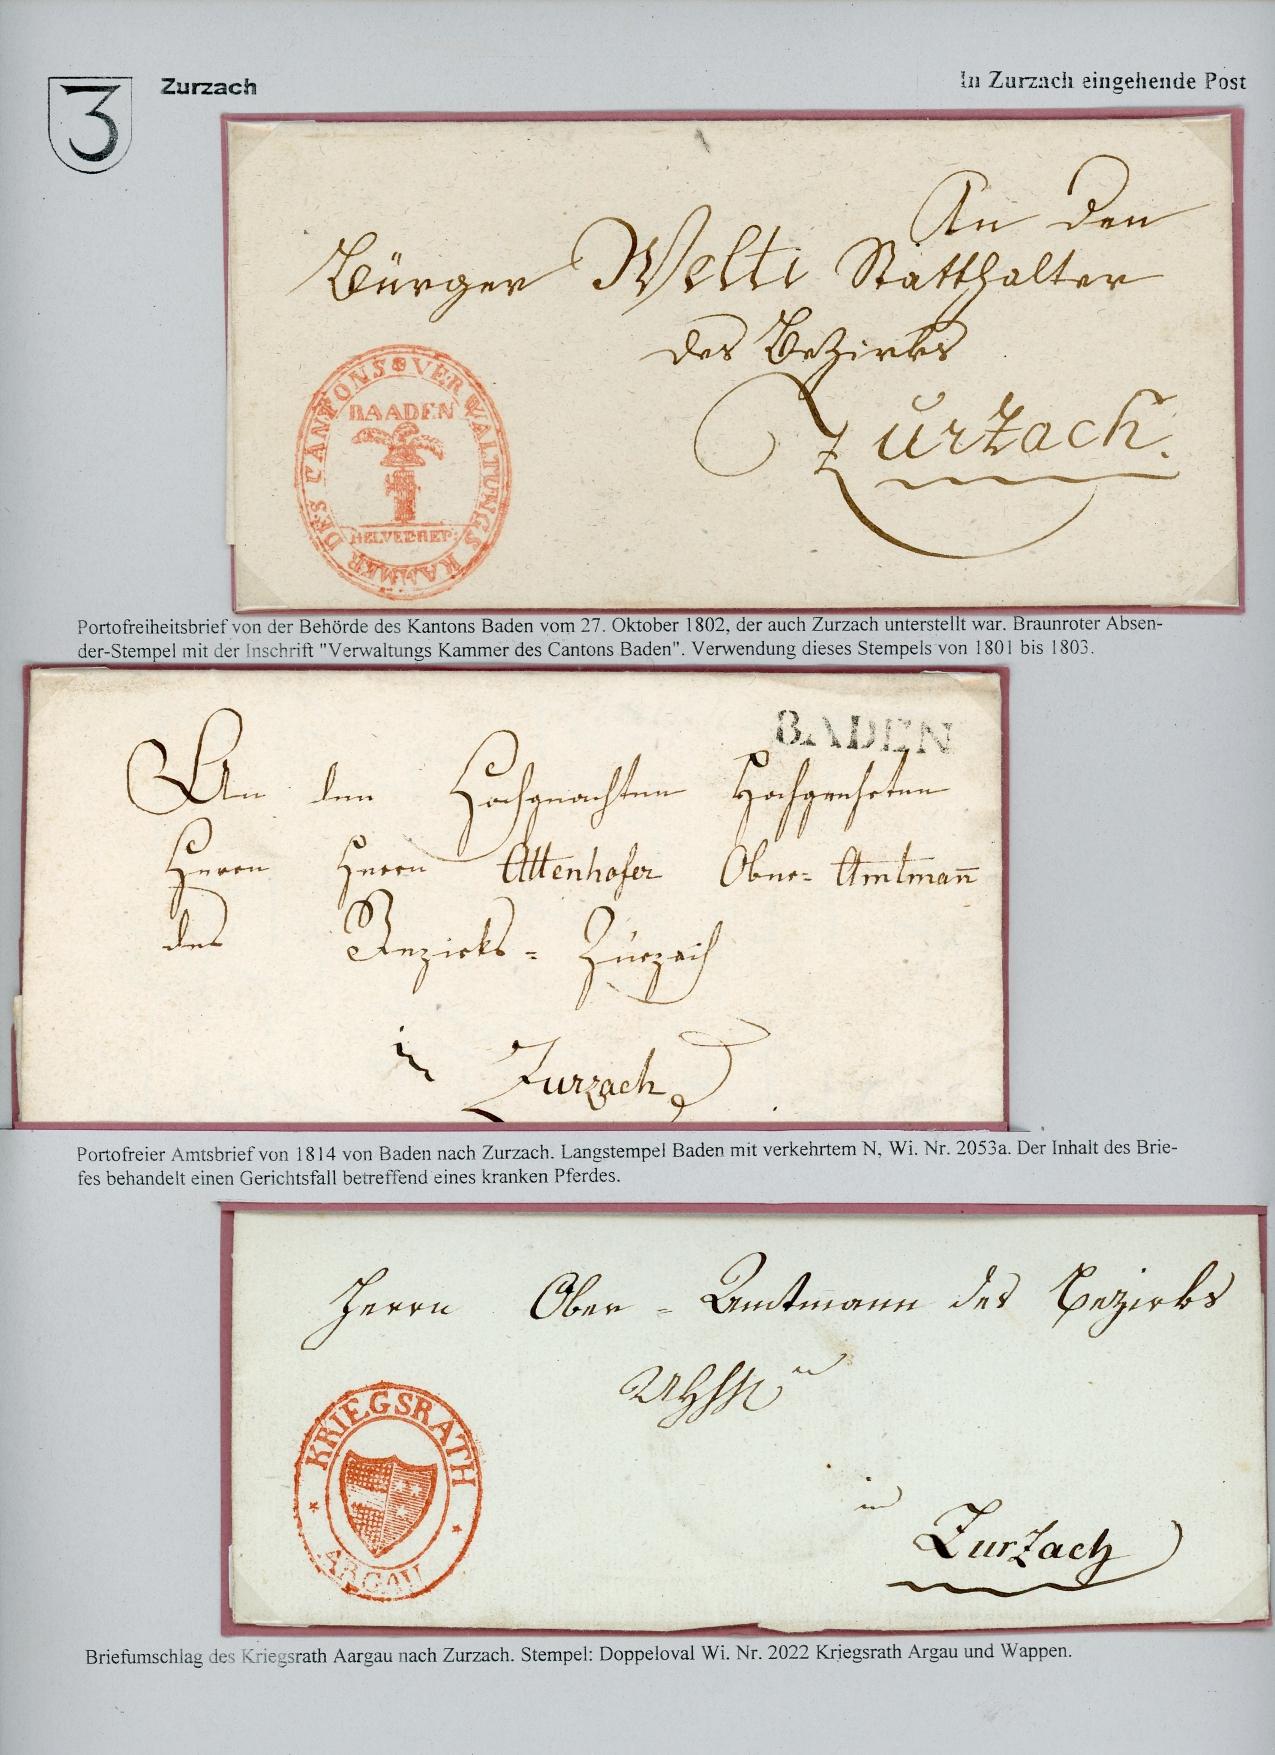 3
Zurzach
In Zurzach eingehende Post
An den
Bürger Welti Statthalter
des Bezirks
Zurzach.
VERWALTUNGS KAMMER DES CANTONS
BAADEN
HELVE.REP:
Portofreiheitsbrief von der Behörde des Kantons Baden vom 27. Oktober 1802, der auch Zurzach unterstellt war. Braunroter Absen-
der-Stempel mit der Inschrift "Verwaltungs Kammer des Cantons Baden". Verwendung dieses Stempels von 1801 bis 1803.
BADEN
An den Hochgeachten Hochgeehrten
Herrn Herrn Attenhofer Ober= Amtman̄
des Bezirks= Zürzach
in Zurzach
Portofreier Amtsbrief von 1814 von Baden nach Zurzach. Langstempel Baden mit verkehrtem N, Wi. Nr. 2053a. Der Inhalt des Brie-
fes behandelt einen Gerichtsfall betreffend eines kranken Pferdes.
Herrn Ober-Amtmann des Bezirks
in
Zurzach
KRIEGSRATH
ARGAU
Briefumschlag des Kriegsrath Aargau nach Zurzach. Stempel: Doppeloval Wi. Nr. 2022 Kriegsrath Argau und Wappen.